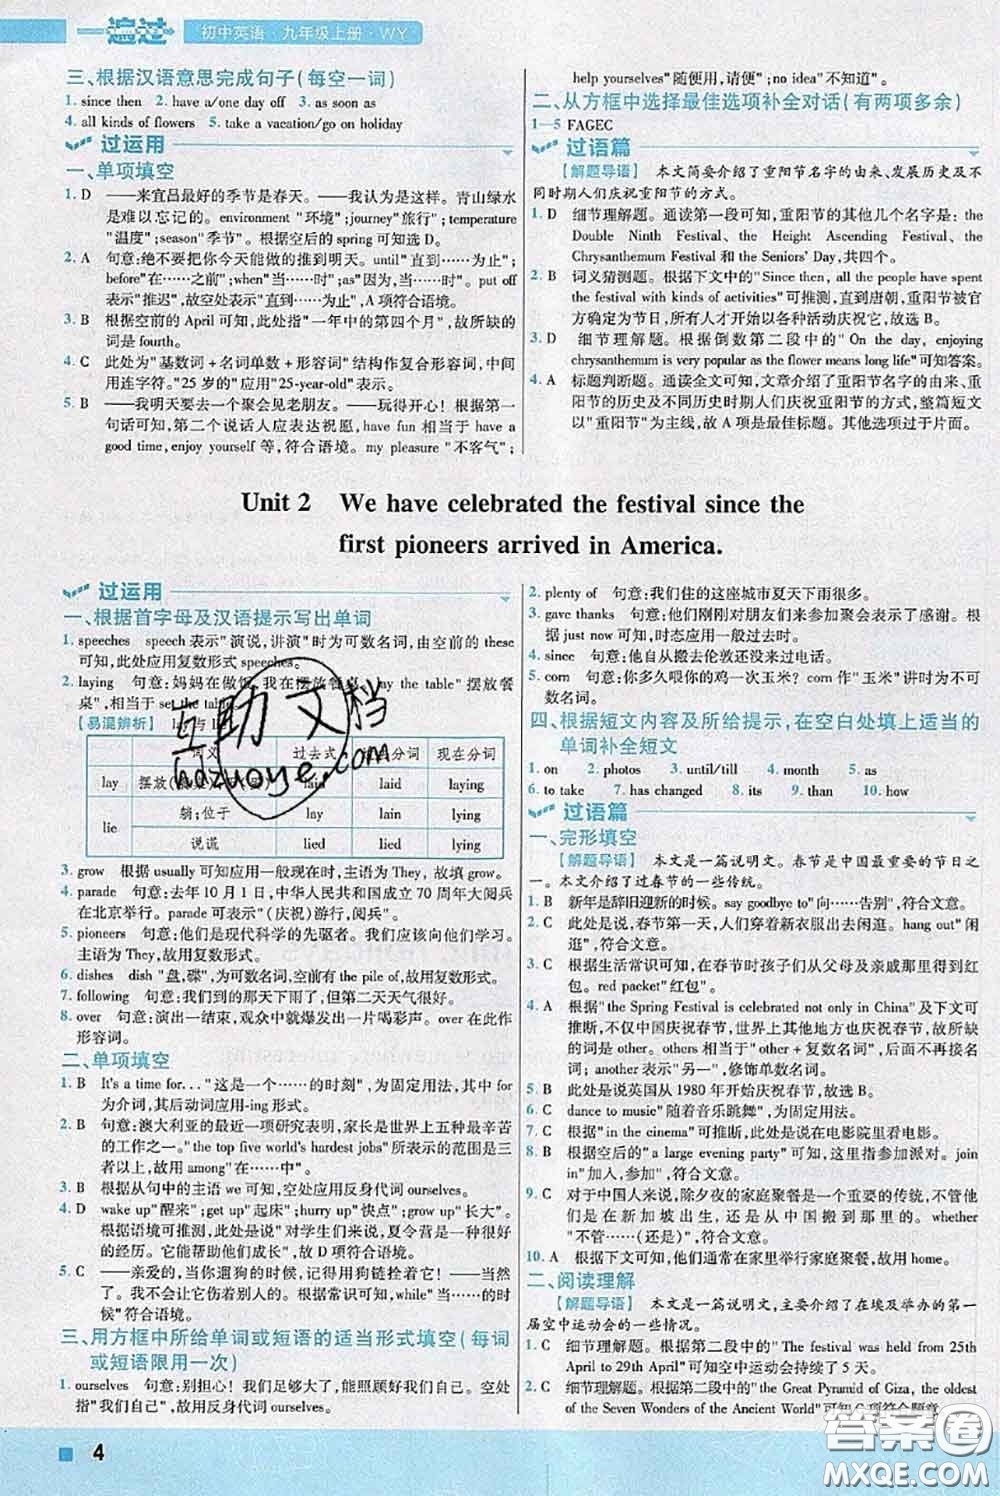 一遍过 初中英语·九年级上册·WY
三、根据汉语意思完成句子(每空一词)
1. since then 2. have a/one day off 3. as soon as
4. all kinds of flowers 5. take a vacation/go on holiday
过运用
一、单项填空
1. D ——来宜昌最好的季节是春天。——我认为是这样。青山绿水
是难以忘记的。environment "环境";journey"旅行";temperature
"温度";season"季节"。根据空后的 spring 可知选 D。
2. A 句意:绝不要把你今天能做的推到明天。until"直到……为止";
before"在……之前";when"当……时";as"因为,当……时"。put off
表示"推迟",故空处表示"直到……为止",A 项符合语境。
3. B 根据空前的 April 可知,此处指"一年中的第四个月",故所缺的
词是 fourth。
4. C 此处为"基数词+名词单数+形容词"结构作复合形容词,中间
用连字符。"25 岁的"应用"25-year-old"表示。
5. B ——我明天要去一个聚会见老朋友。——玩得开心!根据第一
句话可知,第二个说话人应表达祝愿,have fun 相当于 have a
good time, enjoy yourself 等,符合语境。my pleasure "不客气";
help yourselves"随便用,请便";no idea"不知道"。
二、从方框中选择最佳选项补全对话(有两项多余)
1—5 FAGEC
过语篇
【解题导语】 本文简要介绍了重阳节名字的由来、发展历史及不
同时期人们庆祝重阳节的方式。
1. D 细节理解题。通读第一段可知,重阳节的其他几个名字是:the
Double Ninth Festival, the Height Ascending Festival, the
Chrysanthemum Festival 和 the Seniors' Day,共四个。
2. B 词义猜测题。根据下文中的"Since then, all the people have spent
the festival with kinds of activities"可推测,直到唐朝,重阳节被官
方确定为节日,所有人才开始以各种活动庆祝它,故选 B。
3. D 细节理解题。根据倒数第二段中的"On the day, enjoying
chrysanthemum is very popular as the flower means long life"可知答案。
4. A 标题判断题。通读全文可知,文章介绍了重阳节名字的由来、重
阳节的历史及不同历史时期人们庆祝重阳节的方式,整篇短文
以"重阳节"为主线,故 A 项是最佳标题。其他选项过于片面。
Unit 2 We have celebrated the festival since the
first pioneers arrived in America.
过运用
一、根据首字母及汉语提示写出单词
1. speeches speech 表示"演说,讲演"时为可数名词,由空前的 these
可知,此处应用复数形式 speeches。
2. laying 句意:妈妈在做饭,我在摆放餐桌。lay the table"摆放餐
桌",相当于 set the table。
【易混辨析】 lay 与 lie
词义 过去式 过去分词 现在分词
lay 摆放(餐桌);下(蛋) laid laid laying
lie 躺;位于 lay lain lying
说谎 lied lied lying
3. grow 根据 usually 可知应用一般现在时,主语为 They, 故填 grow。
4. parade 句意:去年 10 月 1 日,中华人民共和国成立 70 周年大阅兵
在北京举行。parade 可表示"(庆祝)游行,阅兵"。
5. pioneers 句意:他们是现代科学的先驱者。我们应该向他们学习。
主语为 They,故用复数形式。
6. dishes dish "盘,碟",为可数名词,空前有 the pile of,故用复数形式。
7. following 句意:我们到的那天下雨了,但第二天天气很好。
8. over 句意:演出一结束,观众中就爆发出一片喝彩声。over 在此作
形容词。
二、单项填空
1. B It's a time for... "这是一个……的时刻",为固定用法,其中 for
为介词,其后动词应用-ing 形式。
2. B 句意:澳大利亚的最近一项研究表明,家长是世界上五种最辛苦
的工作之一。"the top five world's hardest jobs"所表示的范围是三
者以上,故用 among"在……中"。
3. B 根据从句中的主语 we 可知,空处应用反身代词 ourselves。
4. D wake up"醒来";get up"起床";hurry up"快点";grow up"长大"。
根据语境可推测,此处是说"对学生们来说,夏令营是一种很好
的经历。它能帮助他们成长",故 D 项符合语境。
5. C ——亲爱的,当你遛狗的时候,记得用狗链拴着它。——当然
了。我不会让它伤着别人的。根据常识可知, while"当……的
时候"符合语境。
三、用方框中所给单词或短语的适当形式填空(每词
或短语限用一次)
1. ourselves 句意:别担心!我们足够大了,能照顾好我们自己。空处
指"我们自己",故用反身代词 ourselves。
2. plenty of 句意:我们居住的这座城市夏天下雨很多。
3. gave thanks 句意:他们刚刚对朋友们来参加聚会表示了感谢。根
据 just now 可知,时态应用一般过去时。
4. since 句意:他自从搬去伦敦还没来过电话。
5. corn 句意:你多久喂你的鸡一次玉米?corn 作"玉米"讲时为不可
数名词。
四、根据短文内容及所给提示,在空白处填上适当的
单词补全短文
1. on 2. photos 3. until/till 4. month 5. as
6. to take 7. has changed 8. its 9. than 10. how
过语篇
一、完形填空
【解题导语】 本文是一篇说明文。春节是中国最重要的节日之
一。本文介绍了过春节的一些传统。
1. B 新年是辞旧迎新的时候。say goodbye to"向……告别",符合文意。
2. C 此处是说,春节第一天,人们穿着新衣服出去闲逛。hang out"闲
逛",符合文意。
3. C 根据生活常识可知,在春节时孩子们从父母及亲戚那里得到红
包。red packet"红包"。
4. A 根据"the Spring Festival is celebrated not only in China"及下文可
推断,不仅中国庆祝春节,世界上其他地方也庆祝春节,故所缺
的词是 other。others 相当于"other+复数名词",后面不再接名
词;another 表示"另一",修饰单数名词。
5. B 此处是说英国从 1980 年开始庆祝春节,故选 B。
6. C dance to music"随着音乐跳舞",为固定用法。
7. C 根据"in the cinema"可推断,此处是说在电影院里看电影。
8. B 根据空后的"a large evening party"可知,这里指参加派对。join
in"加入,参加",符合文意。
9. C 对于中国人来说,除夕夜的家庭聚餐是一个重要的传统,不管他
们是在新加坡出生,还是从中国搬到那里的。whether
"不管……(还是)",符合文意。
10. A 根据下文可知,他们通常在家里举行家庭聚餐,故用 home。
二、阅读理解
【解题导语】 本文是一篇说明文,主要介绍了在埃及举办的第一
届空中运动会的一些情况。
1. C 细节理解题。根据第二段中的"The festival was held from 25th
April to 29th April"可知空中运动会持续了 5 天。
2. C 细节理解题。根据第二段中的"the Great Pyramid of Giza, the oldest
of the Seven Wonders of the Ancient World"可知 C 项符合题意。
4
互助文档
hdzuoye.com
答案圈
MXQE.COM